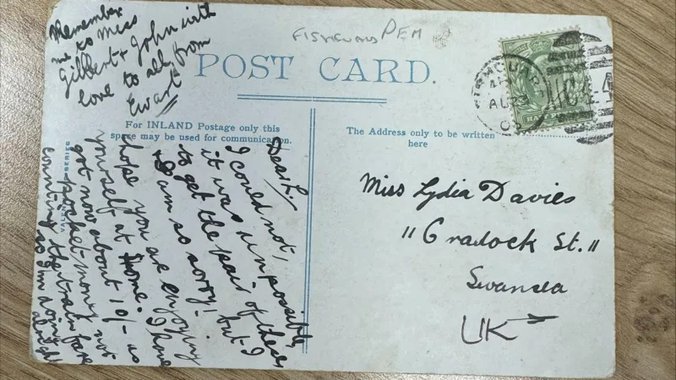 Remember
me to Miss
Gilbert & John with
love to all from
Ewart
FISHGUARD PEM
POST CARD.
For INLAND Postage only this
space may be used for communication.
The Address only to be written
here
Dear L.
I could not,
it was impossible
to get the pair of these
I am so sorry! but I
hope you are enjoying
yourself at home. I have
got now about 10/- as
pocket-money not
counting the train fare
so I'm doing
alright
Miss Lydia Davies
"Cradock St."
Swansea
UK
SERIES
AU 23